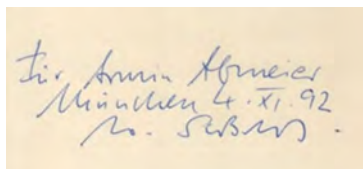 Für Armin Abmeier
München 4. XI. 92